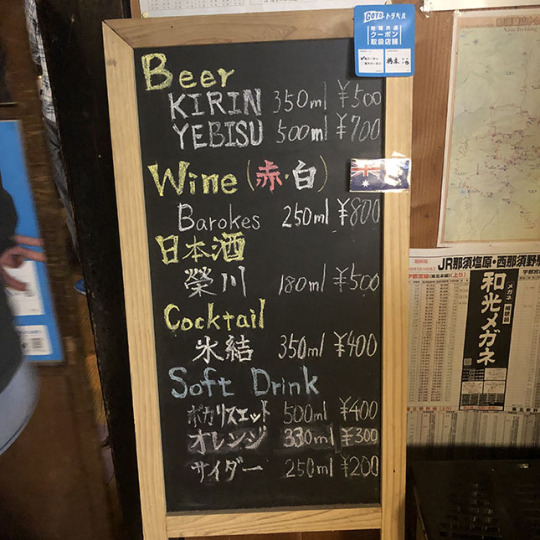 GOTOトラベル
地域共通
クーポン
取扱店舗
Beer
KIRIN 350ml ¥500
YEBISU 500ml ¥700
Wine (赤・白)
Barokes 250ml ¥800
日本酒
榮川 180ml ¥500
Cocktail
氷結 350ml ¥400
Soft Drink
ポカリスエット 500ml ¥400
オレンジ 330ml ¥300
サイダー 250ml ¥200
JR那須塩原・西那須野
メガネ
和光メガネ